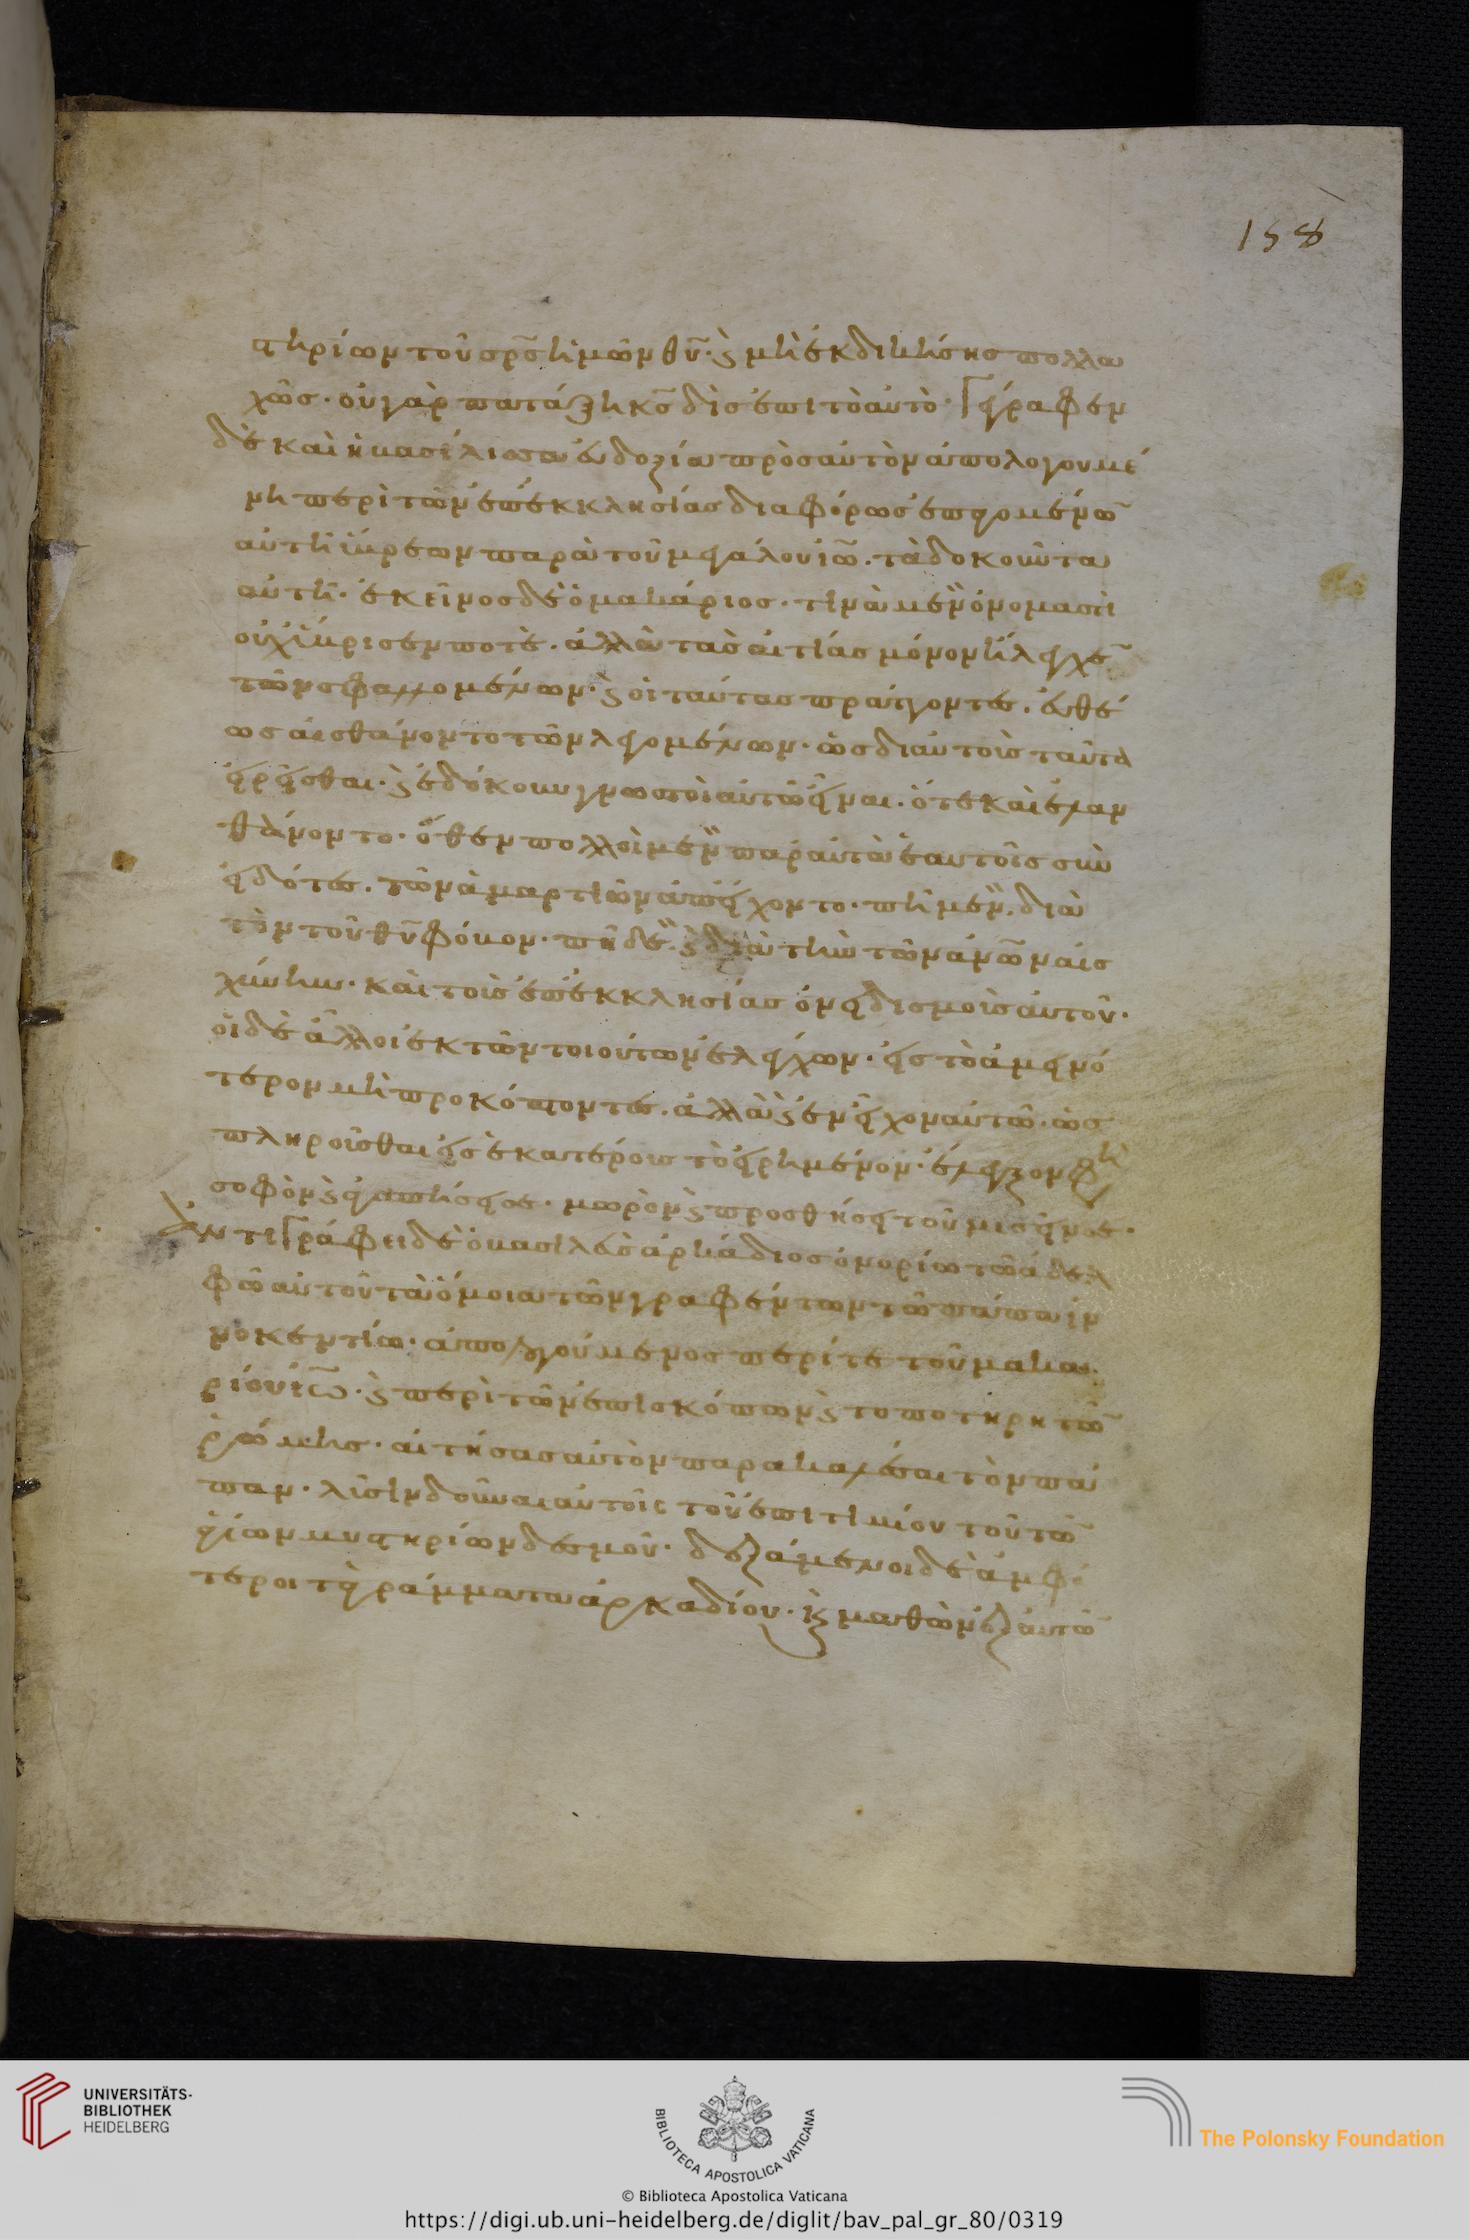 158
στηρίων τοῦ πρ̅ς ἡμῶν θυ̅· ϗ μὴ ἐκδικήσης πολλα
χῶς· οὐ γὰρ πατάξη κς̅ δὶς ἐπιτοαυτὸ· Γέγραφεν
δὲ καὶ ἡ βασίλισσα εὐδοξία πρὸς αὐτὸν ἀπολογουμέ
νη περὶ τῶν ἐπ' ἐκκλησίας διαφόρως ἐπαγομένω̅
αὐτῆ ὕβρεων παρὰ τοῦ μεγάλου ἰω̅. τὰ δοκοῦντα
αὐτῆ· ἐκεῖνος δὲ ὁ μακάριος· τινὰ μὲν ὀνομαστὶ
οὐχ ὕβρισεν ποτὲ. ἀλλὰ τὰς αἰτίας μόνον ἤλεγχε̅
τῶν σφαλλομένων· ϗ οἱ ταύτας πράττοντες. εὐθέ
ως αἰσθάνοντο τῶν λεγομένων· ὡς δι αὐτοὺς ταῦτα
εἰρῆσθαι· ϗ ἐδόκουν γνωστοὶ αὐτῶ εἶναι. ὅτε καὶ ἐλαν
θάνοντο· ὅθεν πολλοὶ μὲν παρ αὐτὰ ἑαυτοῖς συν
ειδότες. τῶν ἁμαρτιῶν ἀπείχοντο· πῆ μὲν, διὰ
τὸν τοῦ θυ̅ φόβον· πῆ δὲ. ϗ διὰ τὴν τῶν ἀνω̅ν αἰσ
χύνην· καὶ τοὺς ἐπ' ἐκκλησίας ὀνειδισμοὺς αὐτοῦ·
οἱ δὲ ἄλλοι ἐκ τῶν τοιούτων ἐλέγχων· εἰς τὸ ἀμεινό
τερον μὴ προκόπτοντες. ἀλλὰ ϗ ἐνεῖχον αὐτῶ. ὡς
πληροῦσθαι εἰς ἑκατέρους τὸ εἰρημένον· ἔλεγξον
σοφὸν ϗ ἀγαπήσει σε· μωρὸν ϗ προσθήσει τοῦ μισεῖν σε·
Ἀντιγράφει δὲ ὁ βασιλεὺς ἀρκάδιος ὁνορίω τῶ ἀδελ
φῶ αὐτοῦ τὰ ὅμοια τῶν γραφέντων τῶ πάπα ἰν
νοκεντίω· ἀπολογούμενος περί τε τοῦ μακα
ρίου ἰω̅· ϗ περὶ τῶν ἐπισκόπων ϗ τοποτηρητῶ̅
ῥώμης· αἰτήσας αὐτὸν παρακαλέσαι τὸν πά
παν· λῦσιν δοῦναι αὐτοῖς τοῦ ἐπιτιμίου τοῦ τῶ̅
θείων μυστηρίων δεσμοῦ· δεξάμενοι δὲ ἀμφό
τεροι τὰ γράμματα ἀρκαδίου· ϗ μαθὼν ἐξ αὐτῶ̅
UNIVERSITÄTS-
BIBLIOTHEK
HEIDELBERG
BIBLIOTECA APOSTOLICA VATICANA
The Polonsky Foundation
© Biblioteca Apostolica Vaticana
https://digi.ub.uni-heidelberg.de/diglit/bav_pal_gr_80/0319